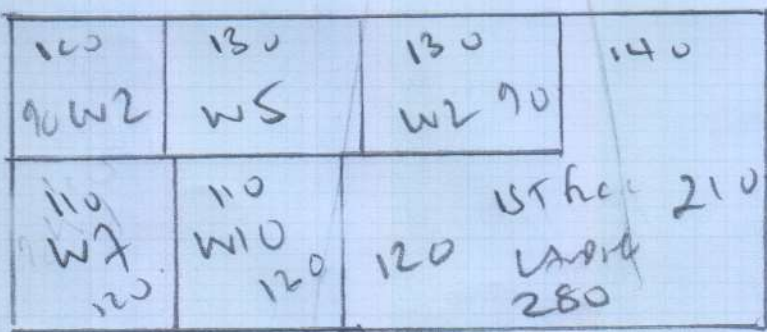 100
90 W2
130
W5
130
W2 90
140
110
W7
120
110
W10
120
120
210
280